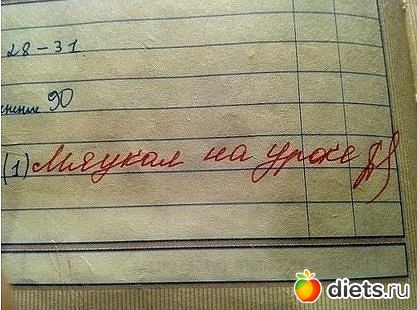 28-31
нение 90
(1) Мяукал на уроке
diets.ru